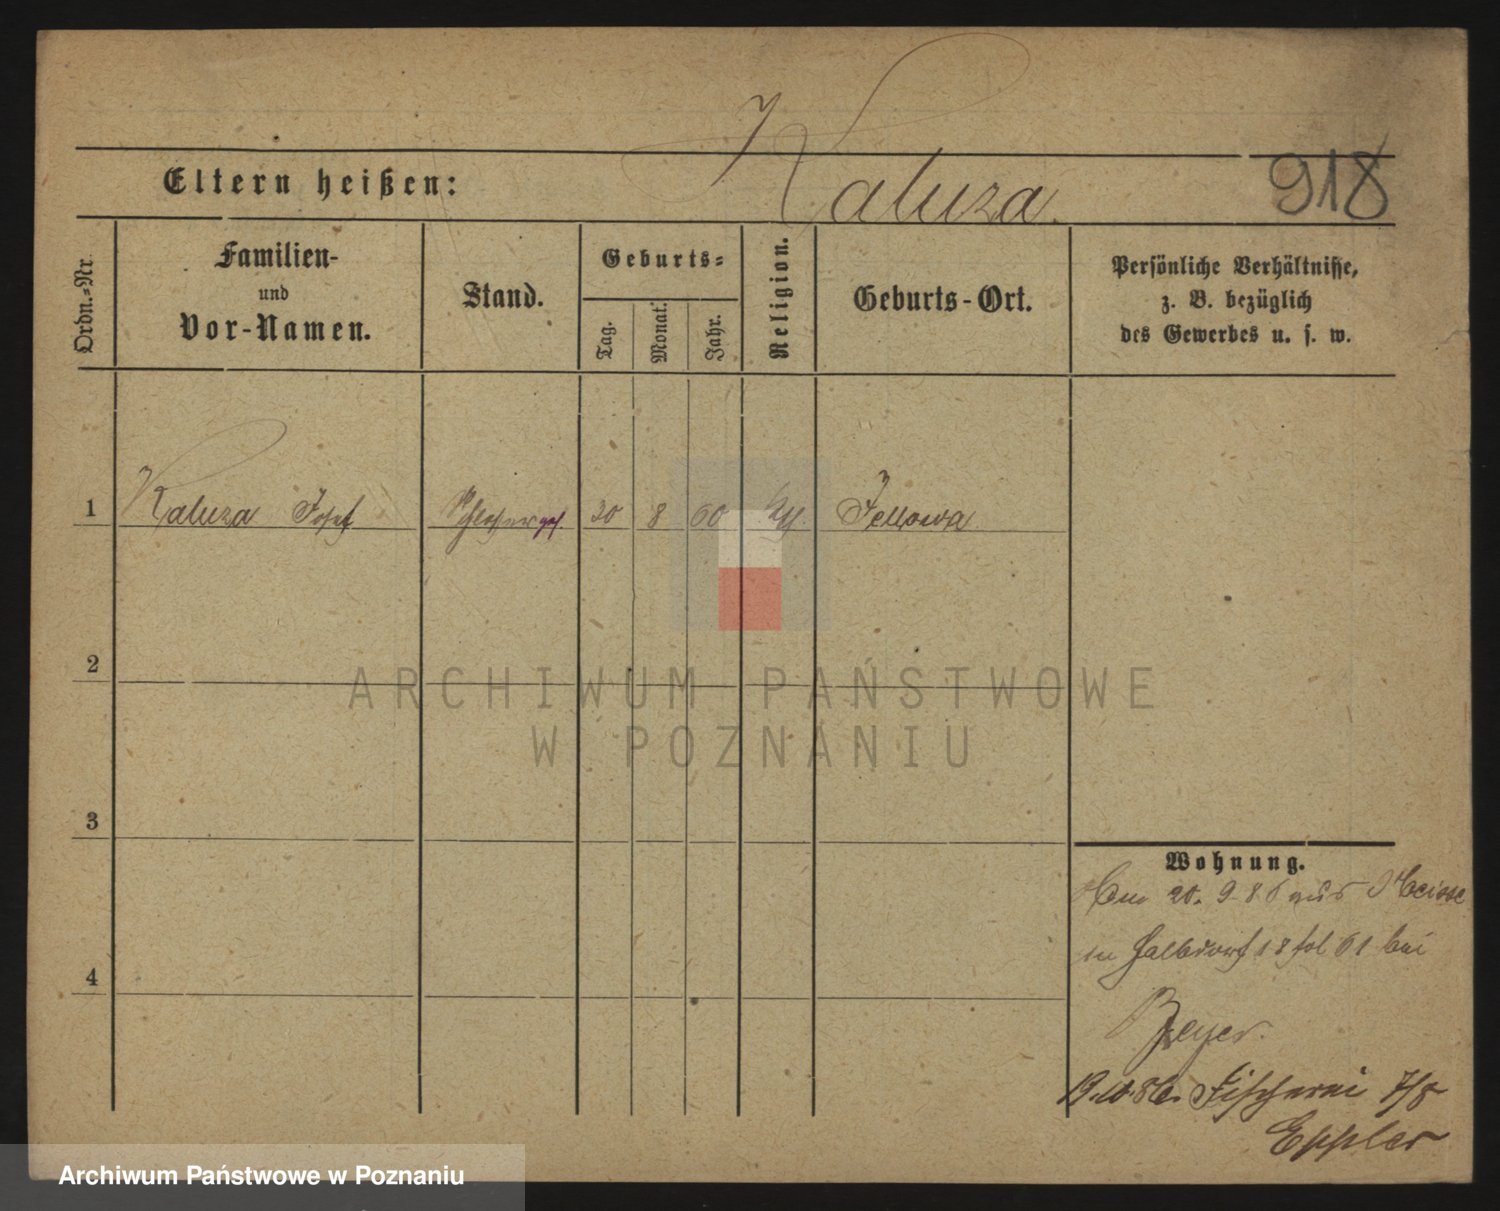 Kaluza.
918
Eltern heißen:
Ordn.-Nr.
Familien-
und
Vor-Namen.
Stand.
Geburts-
Tag.
Monat.
Jahr.
Religion.
Geburts-Ort.
Persönliche Verhältnisse,
z. B. bezüglich
des Gewerbes u. s. w.
1 Kaluza Josef Schlosserges. 8 60 Jellowa
2
ARCHIWUM PAŃSTWOWE
W POZNANIU
3
Wohnung.
20. 9. 86 aus Neisse
in Halbdorf 18 bei
4
Beyer.
19.10.86. Fischerei 7/8
Eppler
Archiwum Państwowe w Poznaniu